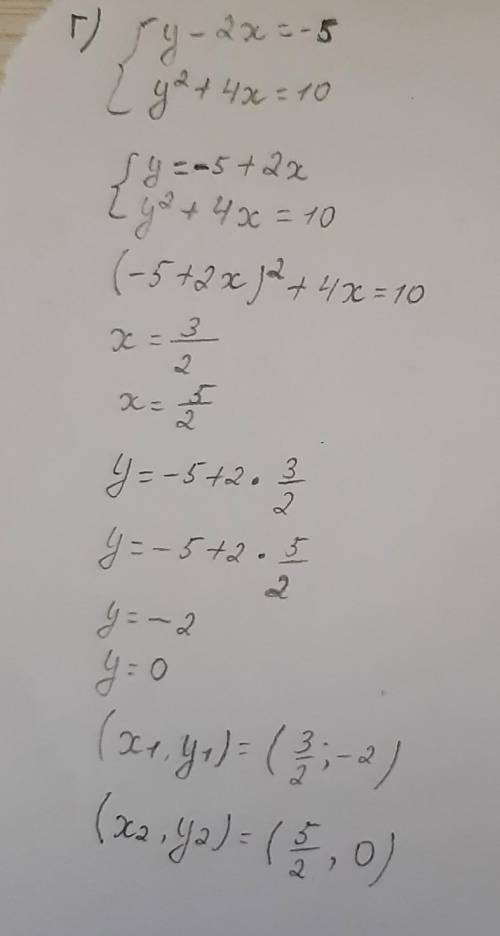 г) { y - 2x = -5
y² + 4x = 10
{ y = -5 + 2x
y² + 4x = 10
(-5 + 2x)² + 4x = 10
x = 3/2
x = 5/2
y = -5 + 2 · 3/2
y = -5 + 2 · 5/2
y = -2
y = 0
(x₁, y₁) = (3/2 ; -2)
(x₂, y₂) = (5/2 , 0)